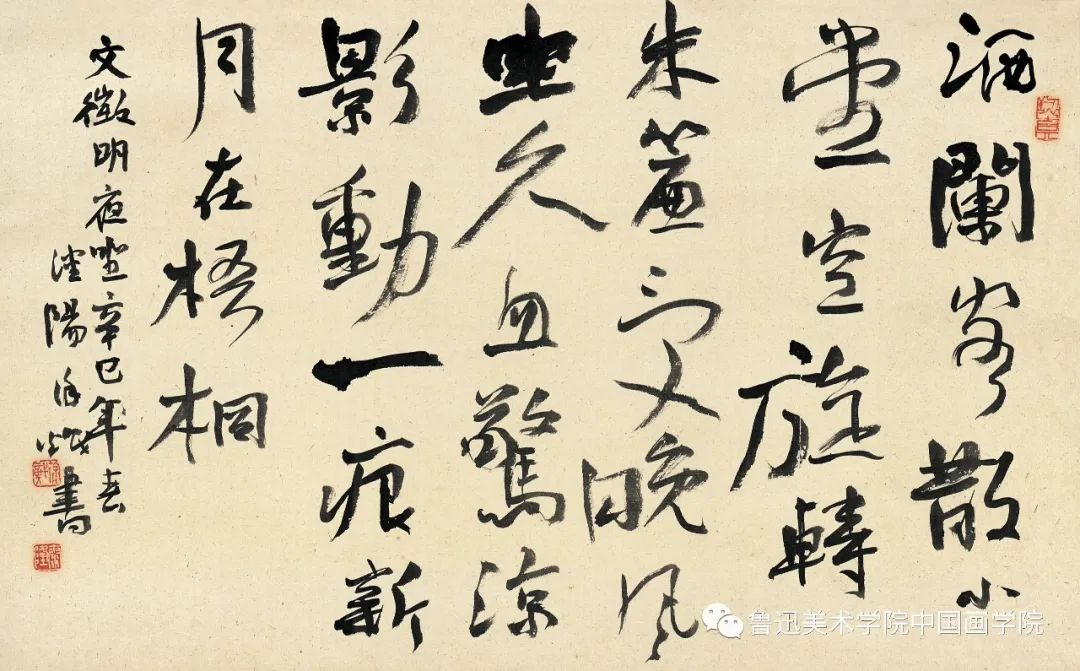 酒闌客散小
堂空旋轉
朱簾受晚風
坐久忽驚涼
影動一痕新
月在梧桐
文徵明夜坐辛巳年春
瀋陽徐書
鲁迅美术学院中国画学院